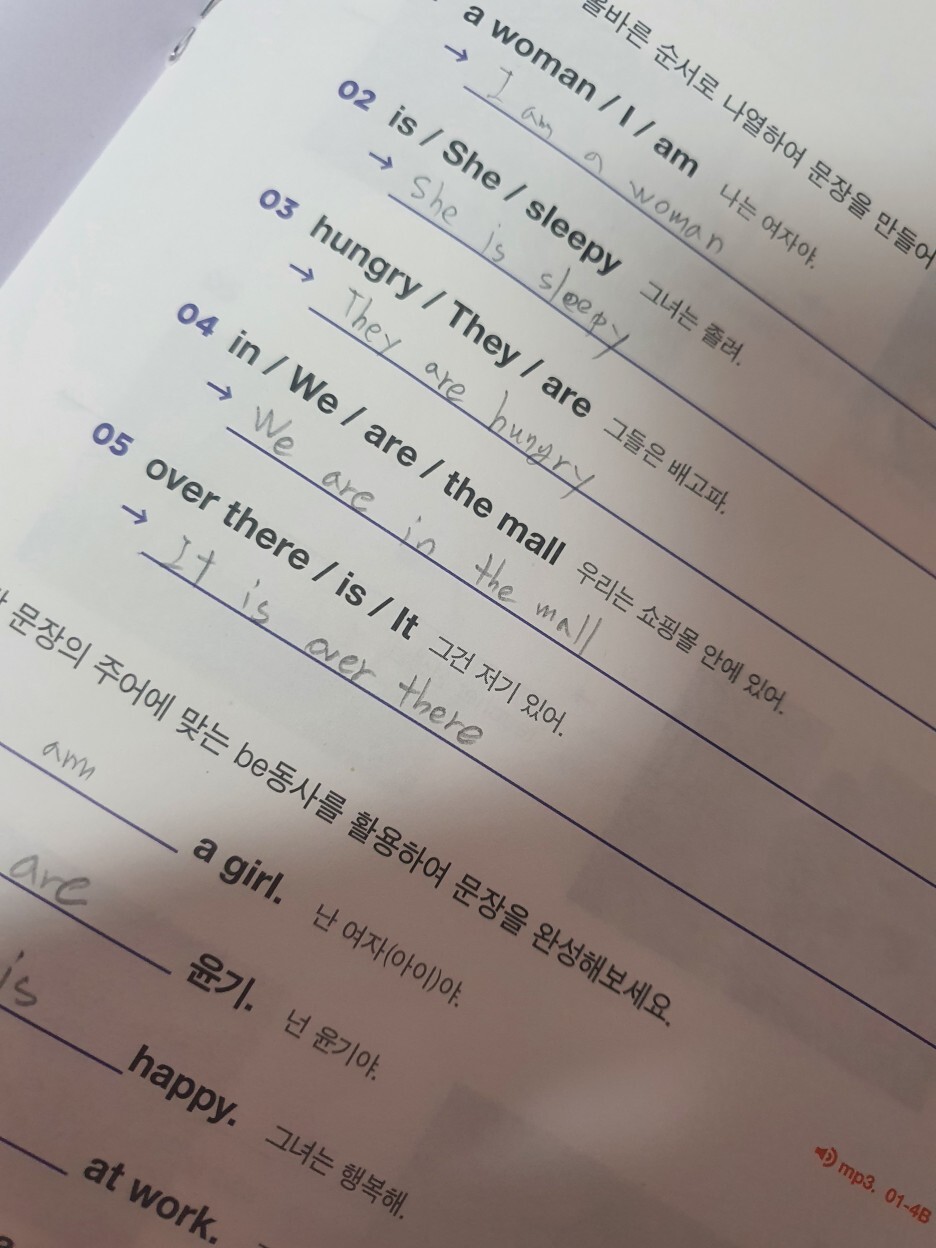 올바른 순서로 나열하여 문장을 만들어
a woman / I / am 나는 여자야.
→ I am a woman
02 is / She / sleepy 그녀는 졸려.
→ She is sleepy
03 hungry / They / are 그들은 배고파.
→ They are hungry
04 in / We / are / the mall 우리는 쇼핑몰 안에 있어.
→ We are in the mall
05 over there / is / It 그건 저기 있어.
→ It is over there
문장의 주어에 맞는 be동사를 활용하여 문장을 완성해보세요.
am a girl. 난 여자(아이)야.
are 윤기. 넌 윤기야.
is happy. 그녀는 행복해.
at work.
mp3. 01-4B